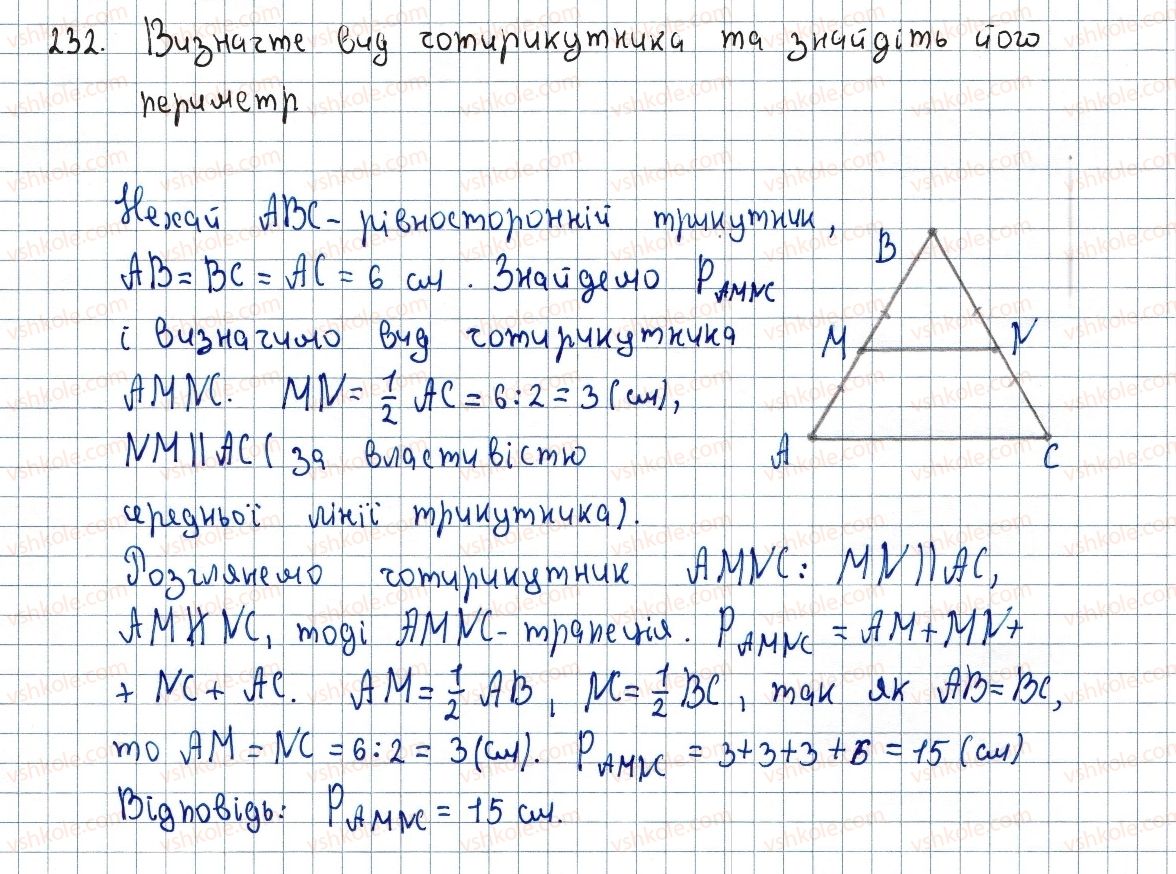 232. Визначте вид чотирикутника та знайдіть його
периметр
Нехай ABC - рівносторонній трикутник,
AB = BC = AC = 6 см. Знайдемо P_AMNC
і визначимо вид чотирикутника
AMNC. MN = 1/2 AC = 6 : 2 = 3 (см),
NM || AC (за властивістю
середньої лінії трикутника).
Розглянемо чотирикутник AMNC: MN || AC,
AM ∦ NC, тоді AMNC - трапеція. P_AMNC = AM + MN +
+ NC + AC. AM = 1/2 AB, NC = 1/2 BC, так як AB = BC,
то AM = NC = 6 : 2 = 3 (см). P_AMNC = 3+3+3+6 = 15 (см)
Відповідь: P_AMNC = 15 см.
B
M N
A C
vshkole.com